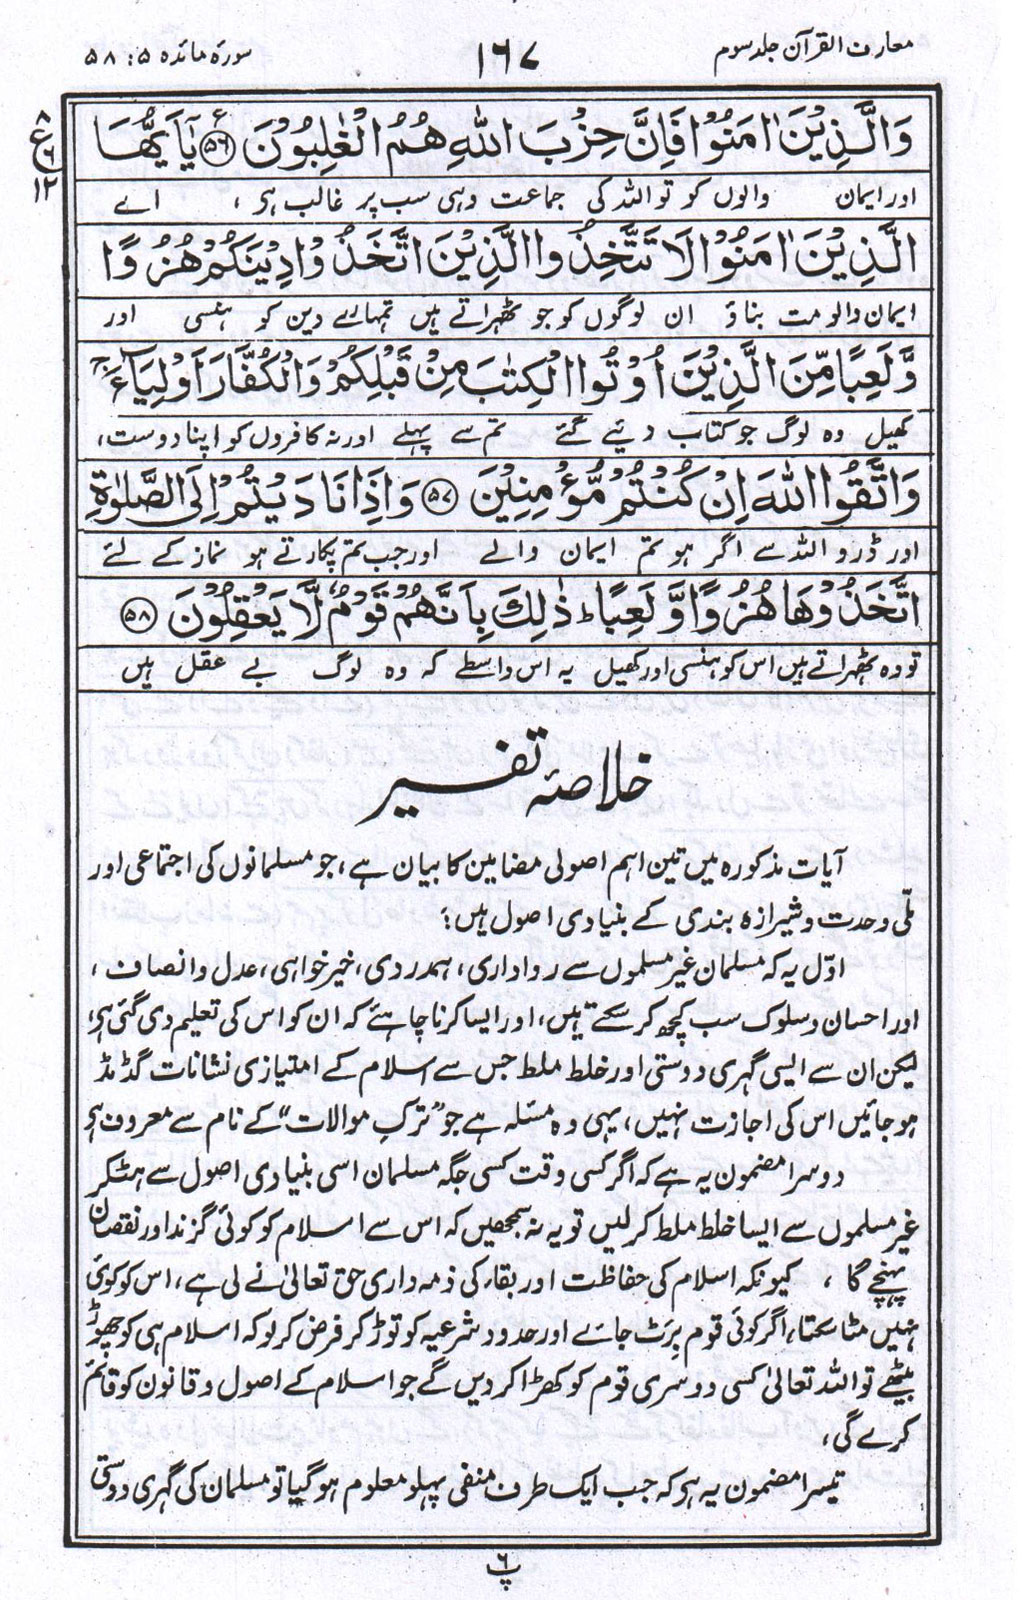 معارف القرآن جلد سوم
۱۶۷
سورۂ مائدہ ۵: ۵۸
وَالَّذِیْنَ اٰمَنُوْا فَاِنَّ حِزْبَ اللّٰهِ هُمُ الْغٰلِبُوْنَ ﴿۵۶﴾ یٰۤاَیُّهَا
ع
۸
۶
۱۲
اور ایمان والوں کو تو اللہ کی جماعت وہی سب پر غالب ہی ، اے
الَّذِیْنَ اٰمَنُوْا لَا تَتَّخِذُوا الَّذِیْنَ اتَّخَذُوْا دِیْنَکُمْ هُزُوًا
ایمان والو مت بناؤ ان لوگوں کو جو ٹھہراتے ہیں تمہارے دین کو ہنسی اور
وَّلَعِبًا مِّنَ الَّذِیْنَ اُوْتُوا الْکِتٰبَ مِنْ قَبْلِکُمْ وَالْکُفَّارَ اَوْلِیَآءَ ۚ
کھیل وہ لوگ جو کتاب دیئے گئے تم سے پہلے اور نہ کافروں کو اپنا دوست،
وَاتَّقُوا اللّٰهَ اِنْ کُنْتُمْ مُّؤْمِنِیْنَ ﴿۵۷﴾ وَاِذَا نَادَیْتُمْ اِلَی الصَّلٰوةِ
اور ڈرو اللہ سے اگر ہو تم ایمان والے اور جب تم پکارتے ہو نماز کے لئے
اتَّخَذُوْهَا هُزُوًا وَّلَعِبًا ؕ ذٰلِکَ بِاَنَّهُمْ قَوْمٌ لَّا یَعْقِلُوْنَ ﴿۵۸﴾
تو وہ ٹھہراتے ہیں اس کو ہنسی اور کھیل یہ اس واسطے کہ وہ لوگ بے عقل ہیں
خلاصۂ تفسیر
آیات مذکورہ میں تین اہم اصولی مضامین کا بیان ہے، جو مسلمانوں کی اجتماعی اور
ملّی وحدت و شیرازہ بندی کے بنیادی اصول ہیں:
اوّل یہ کہ مسلمان غیر مسلموں سے رواداری، ہمدردی، خیر خواہی، عدل و انصاف ،
اور احسان و سلوک سب کچھ کر سکتے ہیں، اور ایسا کرنا چاہئے کہ ان کو اس کی تعلیم دی گئی ہی،
لیکن ان سے ایسی گہری دوستی اور خلط ملط جس سے اسلام کے امتیازی نشانات گڈمڈ
ہو جائیں اس کی اجازت نہیں، یہی وہ مسئلہ ہے جو "ترکِ موالات" کے نام سے معروف ہی
دوسرا مضمون یہ ہے کہ اگر کسی وقت کسی جگہ مسلمان اسی بنیادی اصول سے ہٹ کر
غیر مسلموں سے ایسا خلط ملط کر لیں تو یہ نہ سمجھیں کہ اس سے اسلام کو کوئی گزند اور نقصان
پہنچے گا ، کیونکہ اسلام کی حفاظت اور بقاء کی ذمہ داری حق تعالیٰ نے لی ہے، اس کو کوئی
نہیں مٹا سکتا، اگر کوئی قوم بِرَٹ جائے اور حدودِ شرعیہ کو توڑ کر فرض کر لو کہ اسلام ہی کو چھوڑ
بیٹھے تو اللہ تعالیٰ کسی دوسری قوم کو کھڑا کر دیں گے جو اسلام کے اصول و قانون کو قائم
کرے گی،
تیسرا مضمون یہ ہی کہ جب ایک طرف منفی پہلو معلوم ہو گیا تو مسلمان کی گہری دوستی
پ ۶